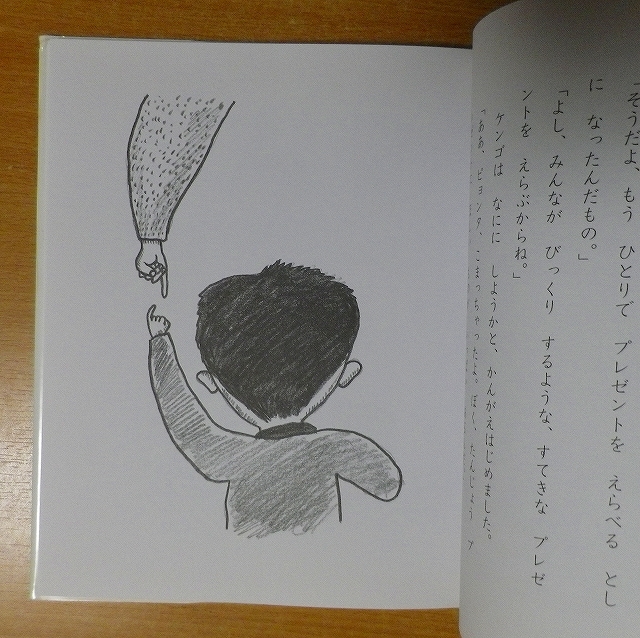 「そうだよ、もう ひとりで プレゼントを えらべる とし
に なったんだもの。」
「よし、みんなが びっくり するような、すてきな プレゼ
ントを えらぶからね。」
ケンゴは なにに しようかと、かんがえはじめました。
「ああ、ピョンタ、こまっちゃったよ。ぼく、たんじょう